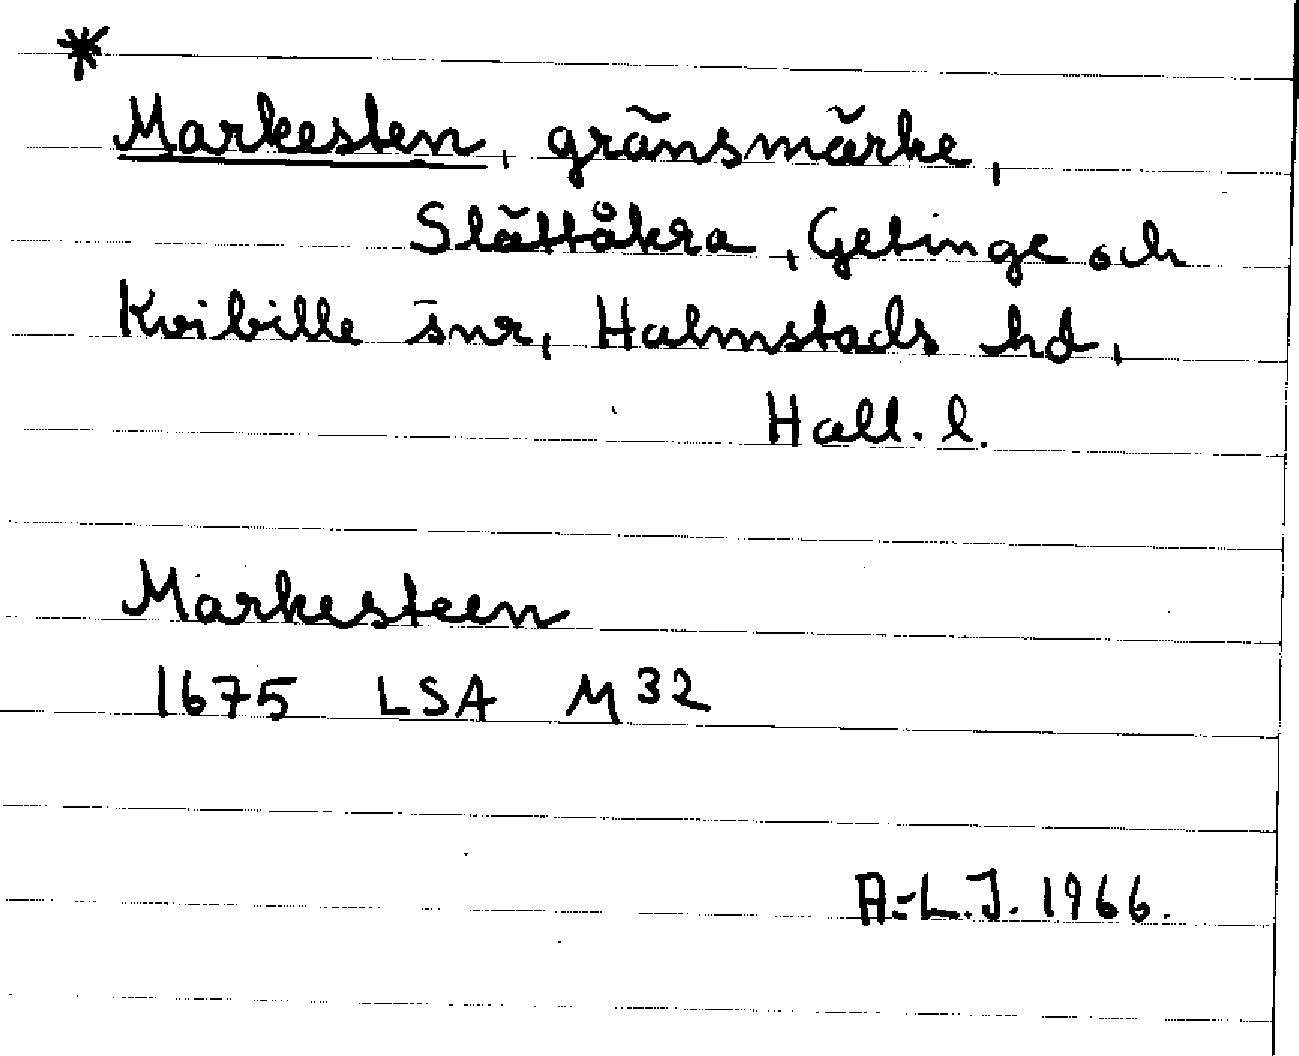 *
Markesten, gränsmärke,
Slättåkra, Getinge och
Kvibille snr, Halmstads hd,
Hall. l.
Markesteen
1675 LSA M 32
A-L.J. 1966.